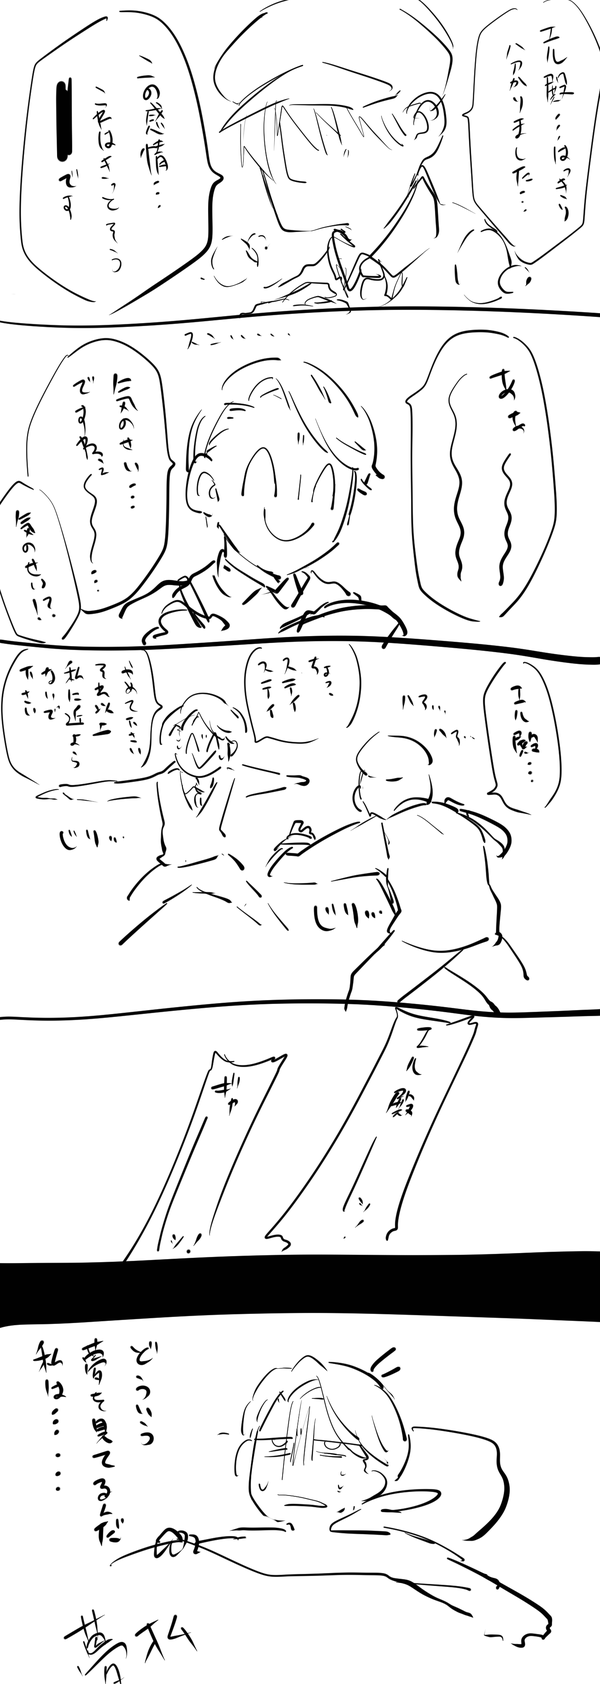 エル殿…はっきり
分かりました…
この感情…
これはきってそう
です
スン……
あぁ
気のせい…
ですね…
気のせい!?
エル殿…
ハァ…
ハァ…
ちょっ、
ステイ
ステイ
やめて下さい
それ以上
私に近よら
ないで
下さい
じり…
じり…
エル
殿
ッ!
ギャ
ッ!
どういう
夢を見てるんだ
私は……